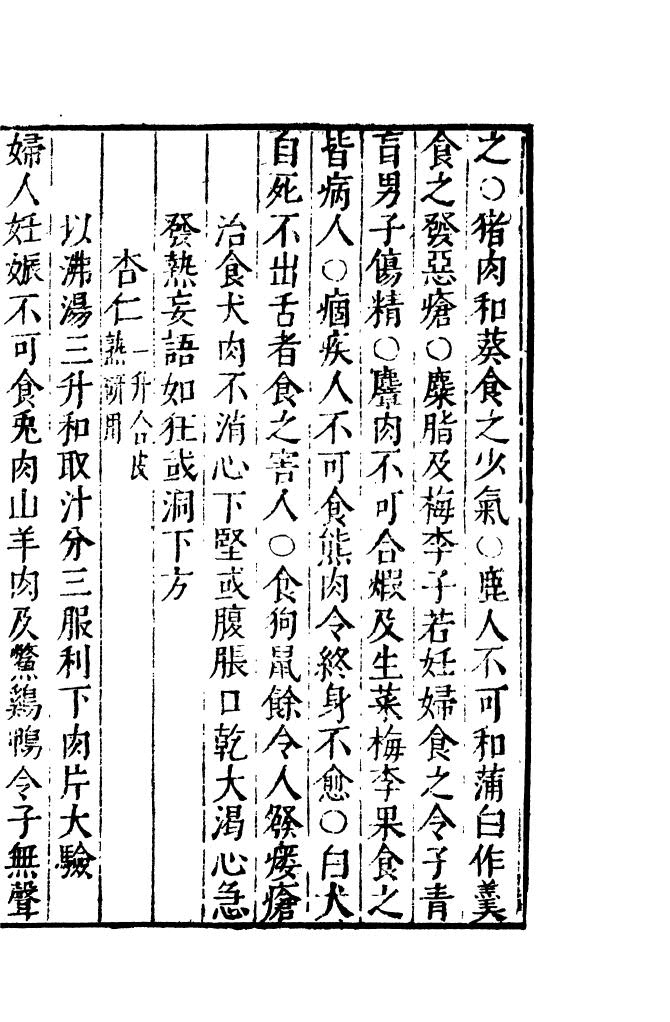 之○猪肉和葵食之少氣○鹿人不可和蒲白作羹
食之發惡瘡○麋脂及梅李子若妊婦食之令子青
盲男子傷精○麞肉不可合蝦及生菜梅李果食之
皆病人○痼疾人不可食熊肉令終身不愈○白犬
自死不出舌者食之害人○食狗鼠餘令人發瘻瘡
治食犬肉不消心下堅或腹脹口乾大渴心急
發熱妄語如狂或洞下方
杏仁一升合皮熟研用
以沸湯三升和取汁分三服利下肉片大驗
婦人妊娠不可食兎肉山羊肉及鱉鷄鴨令子無聲